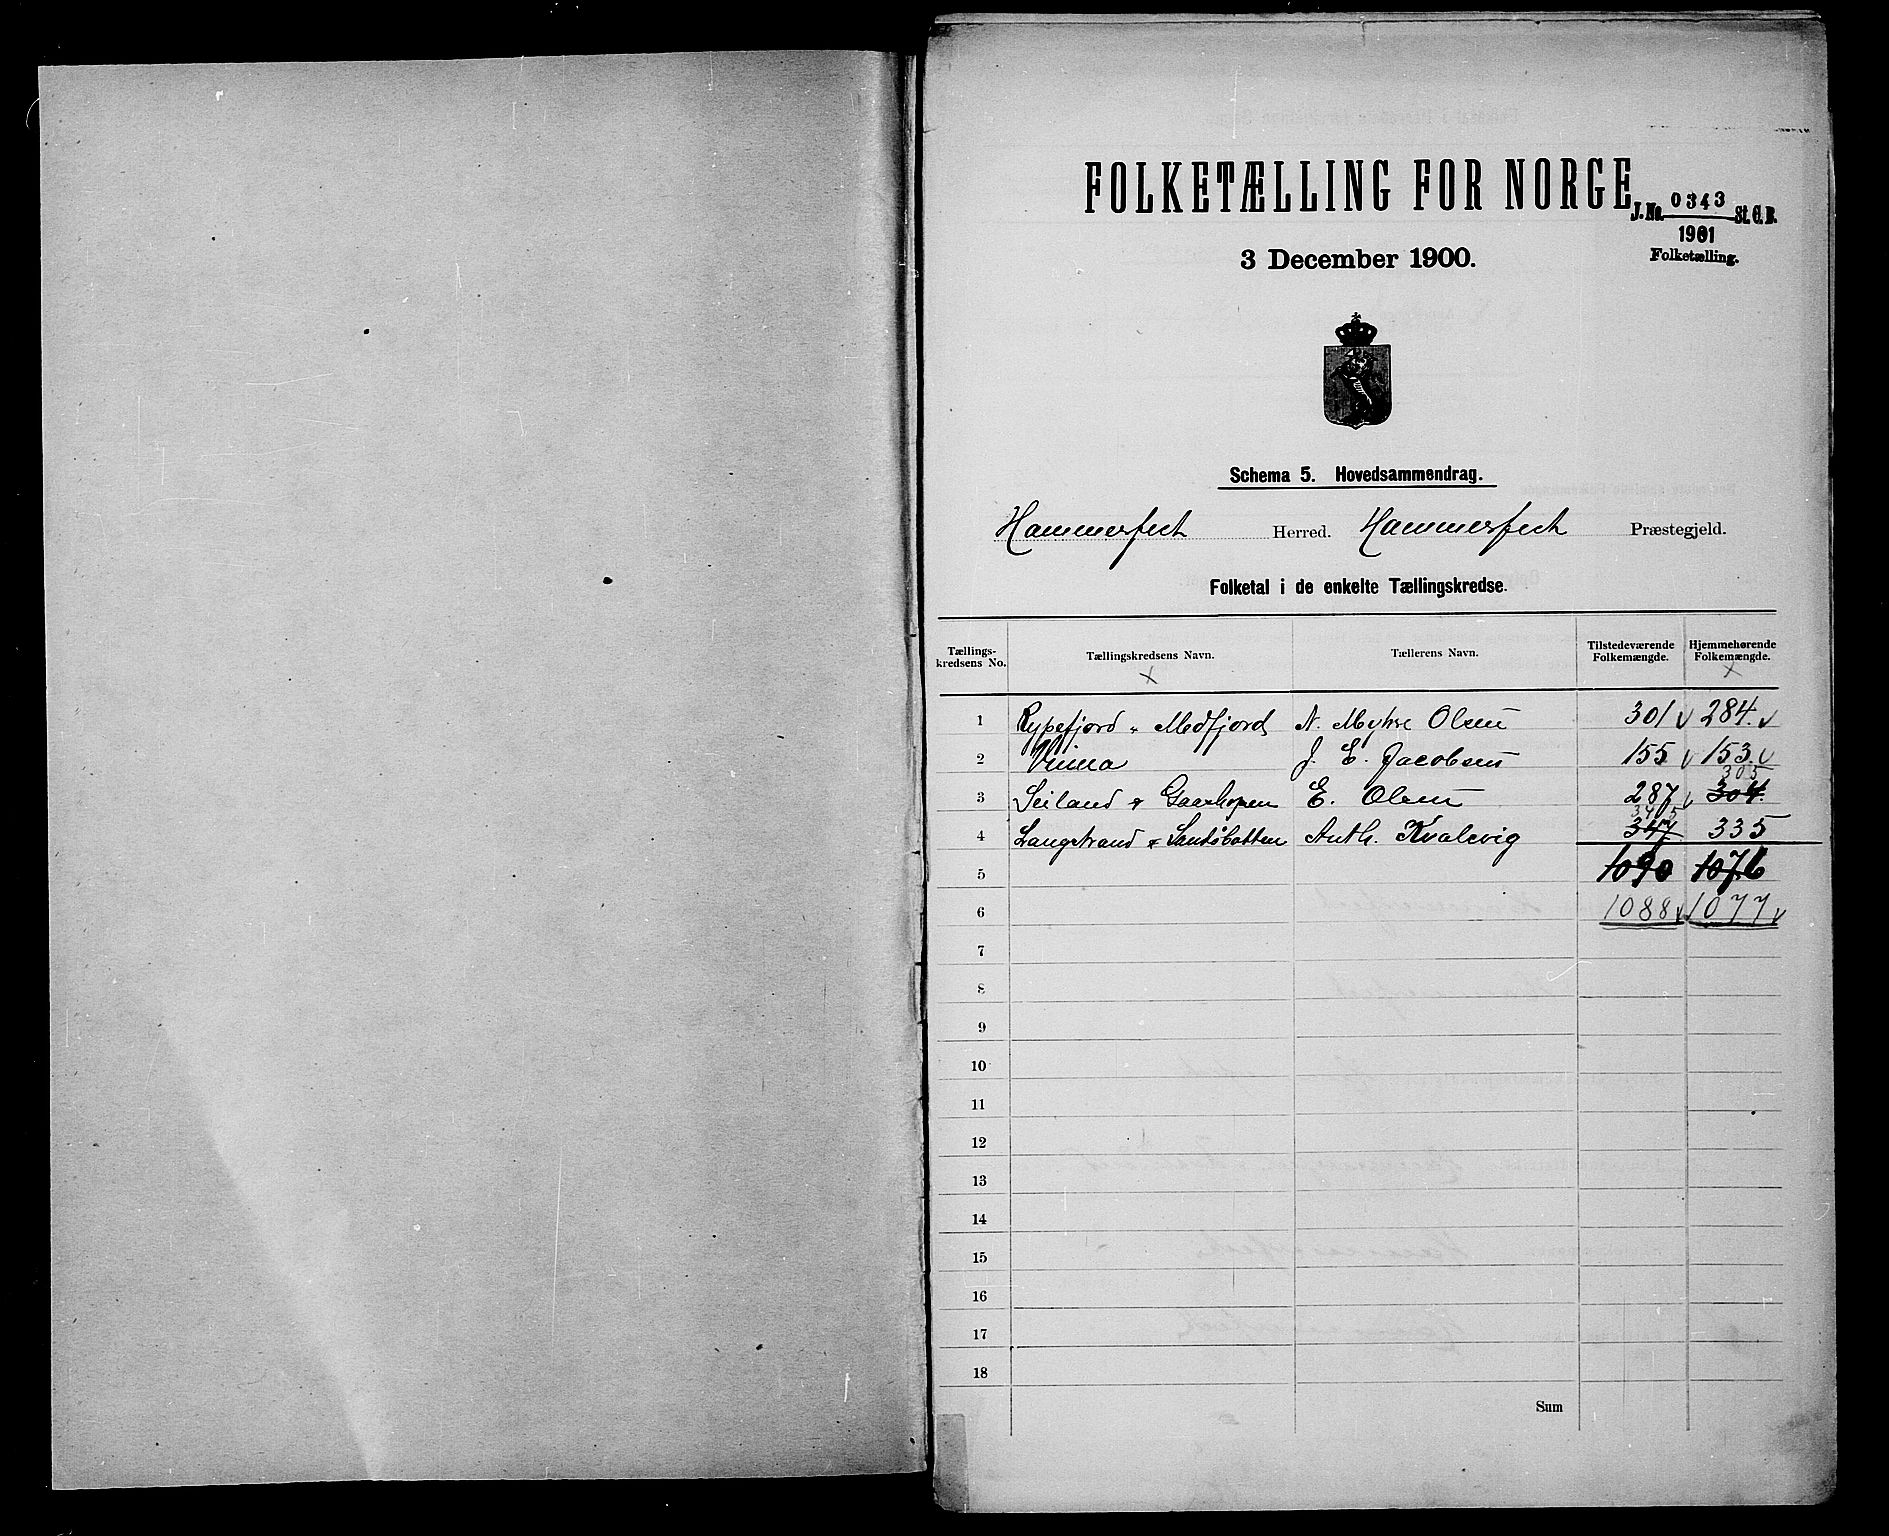 FOLKETÆLLING FOR NORGE
J.No. 0343 St.C.B.
1901
Folketælling.
3 December 1900.
Schema 5. Hovedsammendrag.
Hammerfest Herred. Hammerfest Præstegjeld.
Folketal i de enkelte Tællingskredse.
Tællings-kredsens No. Tællingskredsens Navn. Tællerens Navn. Tilstedeværende Folkemængde. Hjemmehørende Folkemængde.
x x
1 Rypefjord " Medfjord N. Myhre Olsen 301 284.
2 J. E. Jacobsen 155 153.
305
3 Seiland & Gaashopen E. Olsen 287 304.
345
4 Langstrand & Sandöbotten Anth. Kvalevig 347 335
5 1090 1076
6 1088 1077
7
8
9
10
11
12
13
14
15
16
17
18
Sum